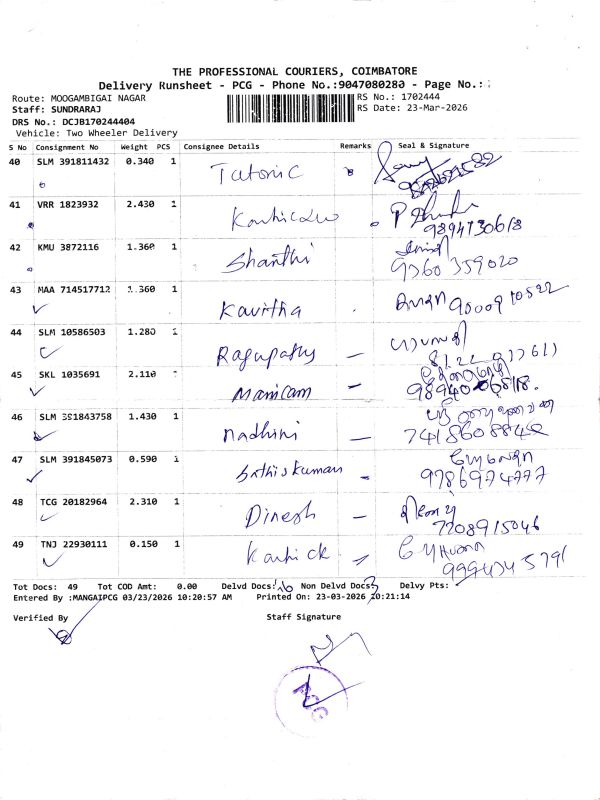 THE PROFESSIONAL COURIERS, COIMBATORE
Delivery Runsheet - PCG - Phone No.:9047080280 - Page No.:
Route: MOOGAMBIGAI NAGAR
RS No.: 1702444
Staff: SUNDRARAJ
RS Date: 23-Mar-2026
DRS No.: DCJB170244404
Vehicle: Two Wheeler Delivery
S No Consignment No Weight PCS Consignee Details Remarks Seal & Signature
40 SLM 391811432 0.340 1 Tutonic
41 VRR 1823932 2.430 1
9894730618
42 KMU 3872116 1.360 1 Shanthi
9360359020
43 MAA 714517712 1.360 1 Kavitha 9000910522
44 SLM 10586503 1.280 1 Ragupathy
45 SKL 1035691 2.110 Manicam
46 SLM 391843758 1.430 1 Nadhini
7418608842
47 SLM 391845073 0.590 Sathiskumar
9786974777
48 TCG 20182964 2.310 1 Dinesh
7208915046
49 TNJ 22930111 0.150 1 Karthick
Tot Docs: 49 Tot COD Amt: 0.00 Delvd Docs: Non Delvd Docs: 3 Delvy Pts:
Entered By :MANGAIPCG 03/23/2026 10:20:57 AM Printed On: 23-03-2026 10:21:14
Verified By Staff Signature
PCG